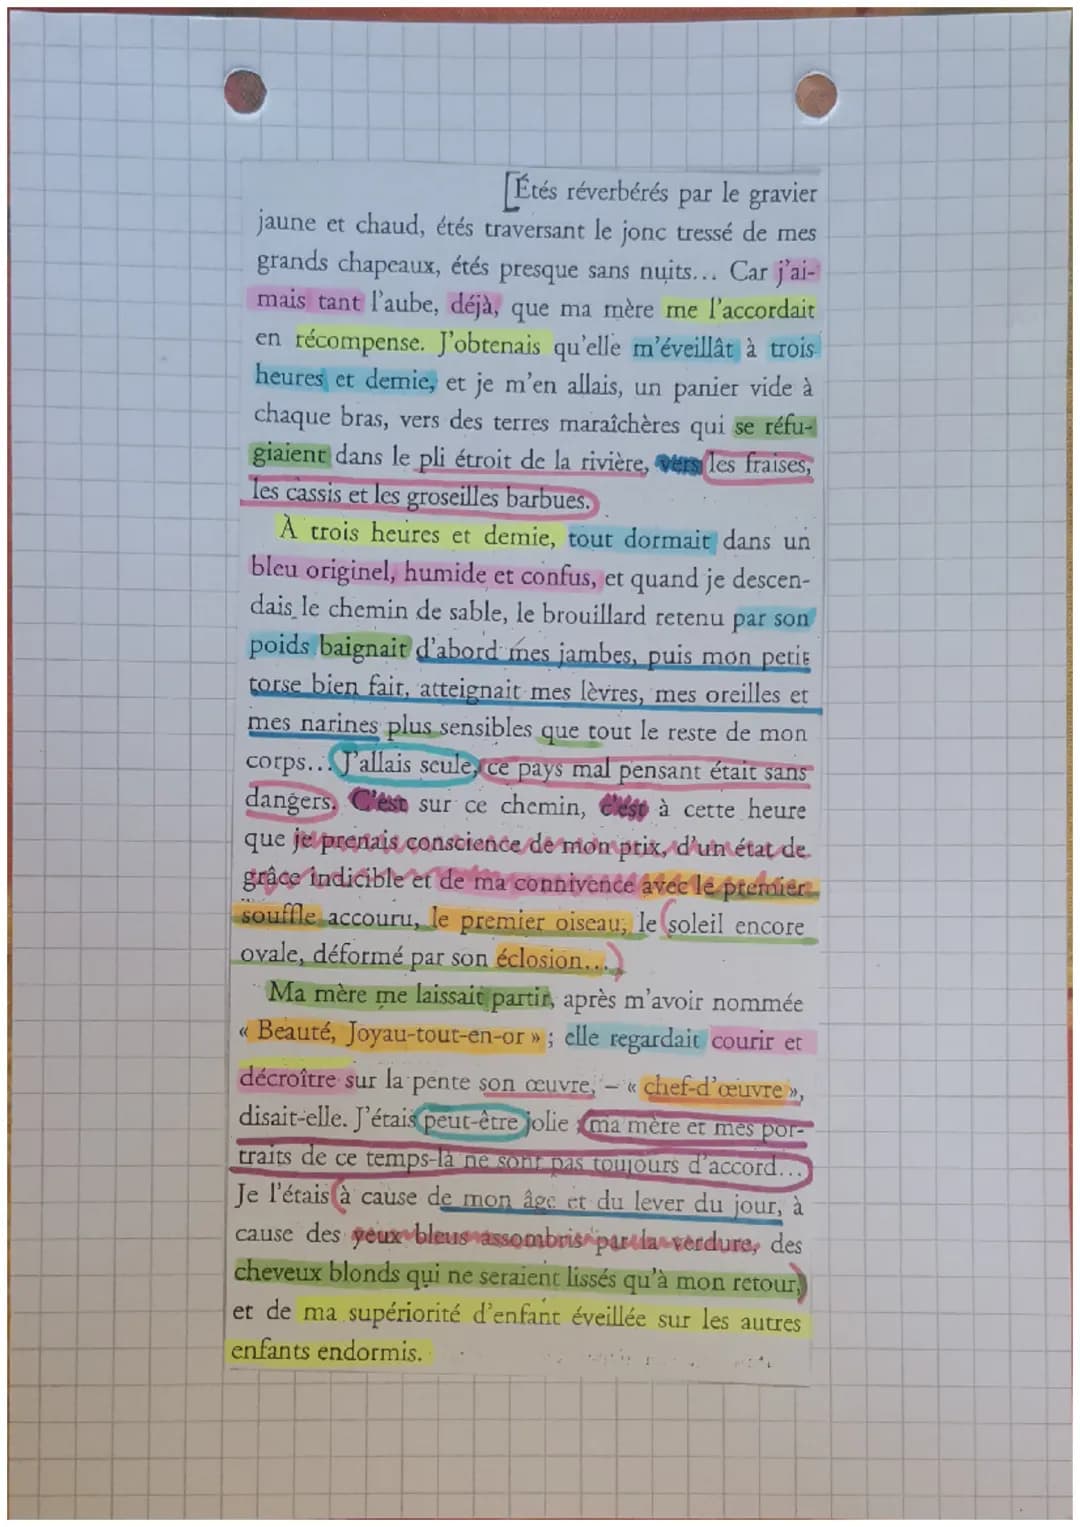 [Étés réverbérés par le gravier
jaune et chaud, étés traversant le jonc tressé de mes
grands chapeaux, étés presque sans nuits... Car j'ai-
mais tant l'aube, déjà, que ma mère me l'accordait
en récompense. J'obtenais qu'elle m'éveillât à trois
heures et demie, et je m'en allais, un panier vide à
chaque bras, vers des terres maraîchères qui se réfu-
giaient dans le pli étroit de la rivière, vers les fraises,
les cassis et les groseilles barbues.
À trois heures et demie, tout dormait dans un
bleu originel, humide et confus, et quand je descen-
dais le chemin de sable, le brouillard retenu par son
poids baignait d'abord mes jambes, puis mon petit
torse bien fait, atteignait mes lèvres, mes oreilles et
mes narines plus sensibles que tout le reste de mon
corps... J'allais seule, ce pays mal pensant était sans
dangers. C'est sur ce chemin, c'est à cette heure
que je prenais conscience de mon prix, d'un état de
grâce indicible et de ma connivence avec le premier
souffle accouru, le premier oiseau, le (soleil encore
ovale, déformé par son éclosion...)
Ma mère me laissait partir, après m'avoir nommée
« Beauté, Joyau-tout-en-or » ; elle regardait courir et
décroître sur la pente son œuvre, – « chef-d'œuvre »,
disait-elle. J'étais peut-être jolie ; ma mère et mes por-
traits de ce temps-là ne sont pas toujours d'accord...
Je l'étais (à cause de mon âge et du lever du jour, à
cause des yeux bleus assombris par la verdure, des
cheveux blonds qui ne seraient lissés qu'à mon retour,)
et de ma supériorité d'enfant éveillée sur les autres
enfants endormis.